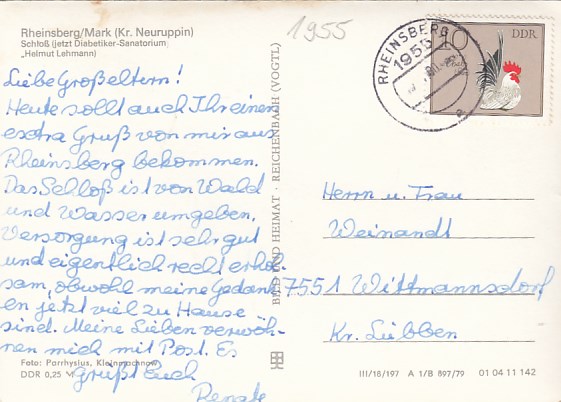 Rheinsberg/Mark (Kr. Neuruppin)
Schloß (jetzt Diabetiker-Sanatorium
„Helmut Lehmann)
1955
RHEINSBERG
1955
10
DDR
Liebe Großeltern!
Heute sollt auch Ihr einen
extra Gruß von mir aus
Rheinsberg bekommen.
Das Schloß ist von Wald
und Wasser umgeben.
Versorgung ist sehr gut
und eigentlich recht erhol-
sam, obwohl meine Gedank-
en jetzt viel zu Hause
sind. Meine Lieben verwöh-
nen mich mit Post. Es
grüßt Euch
Renate
BILD UND HEIMAT · REICHENBACH (VOGTL)
Herrn u. Frau
Weinandt
7551 Wittmannsdorf
Kr. Lübben
Foto: Parrhysius, Kleinmachnow
DDR 0,25 M
III/18/197 A 1/B 897/79 01 04 11 142